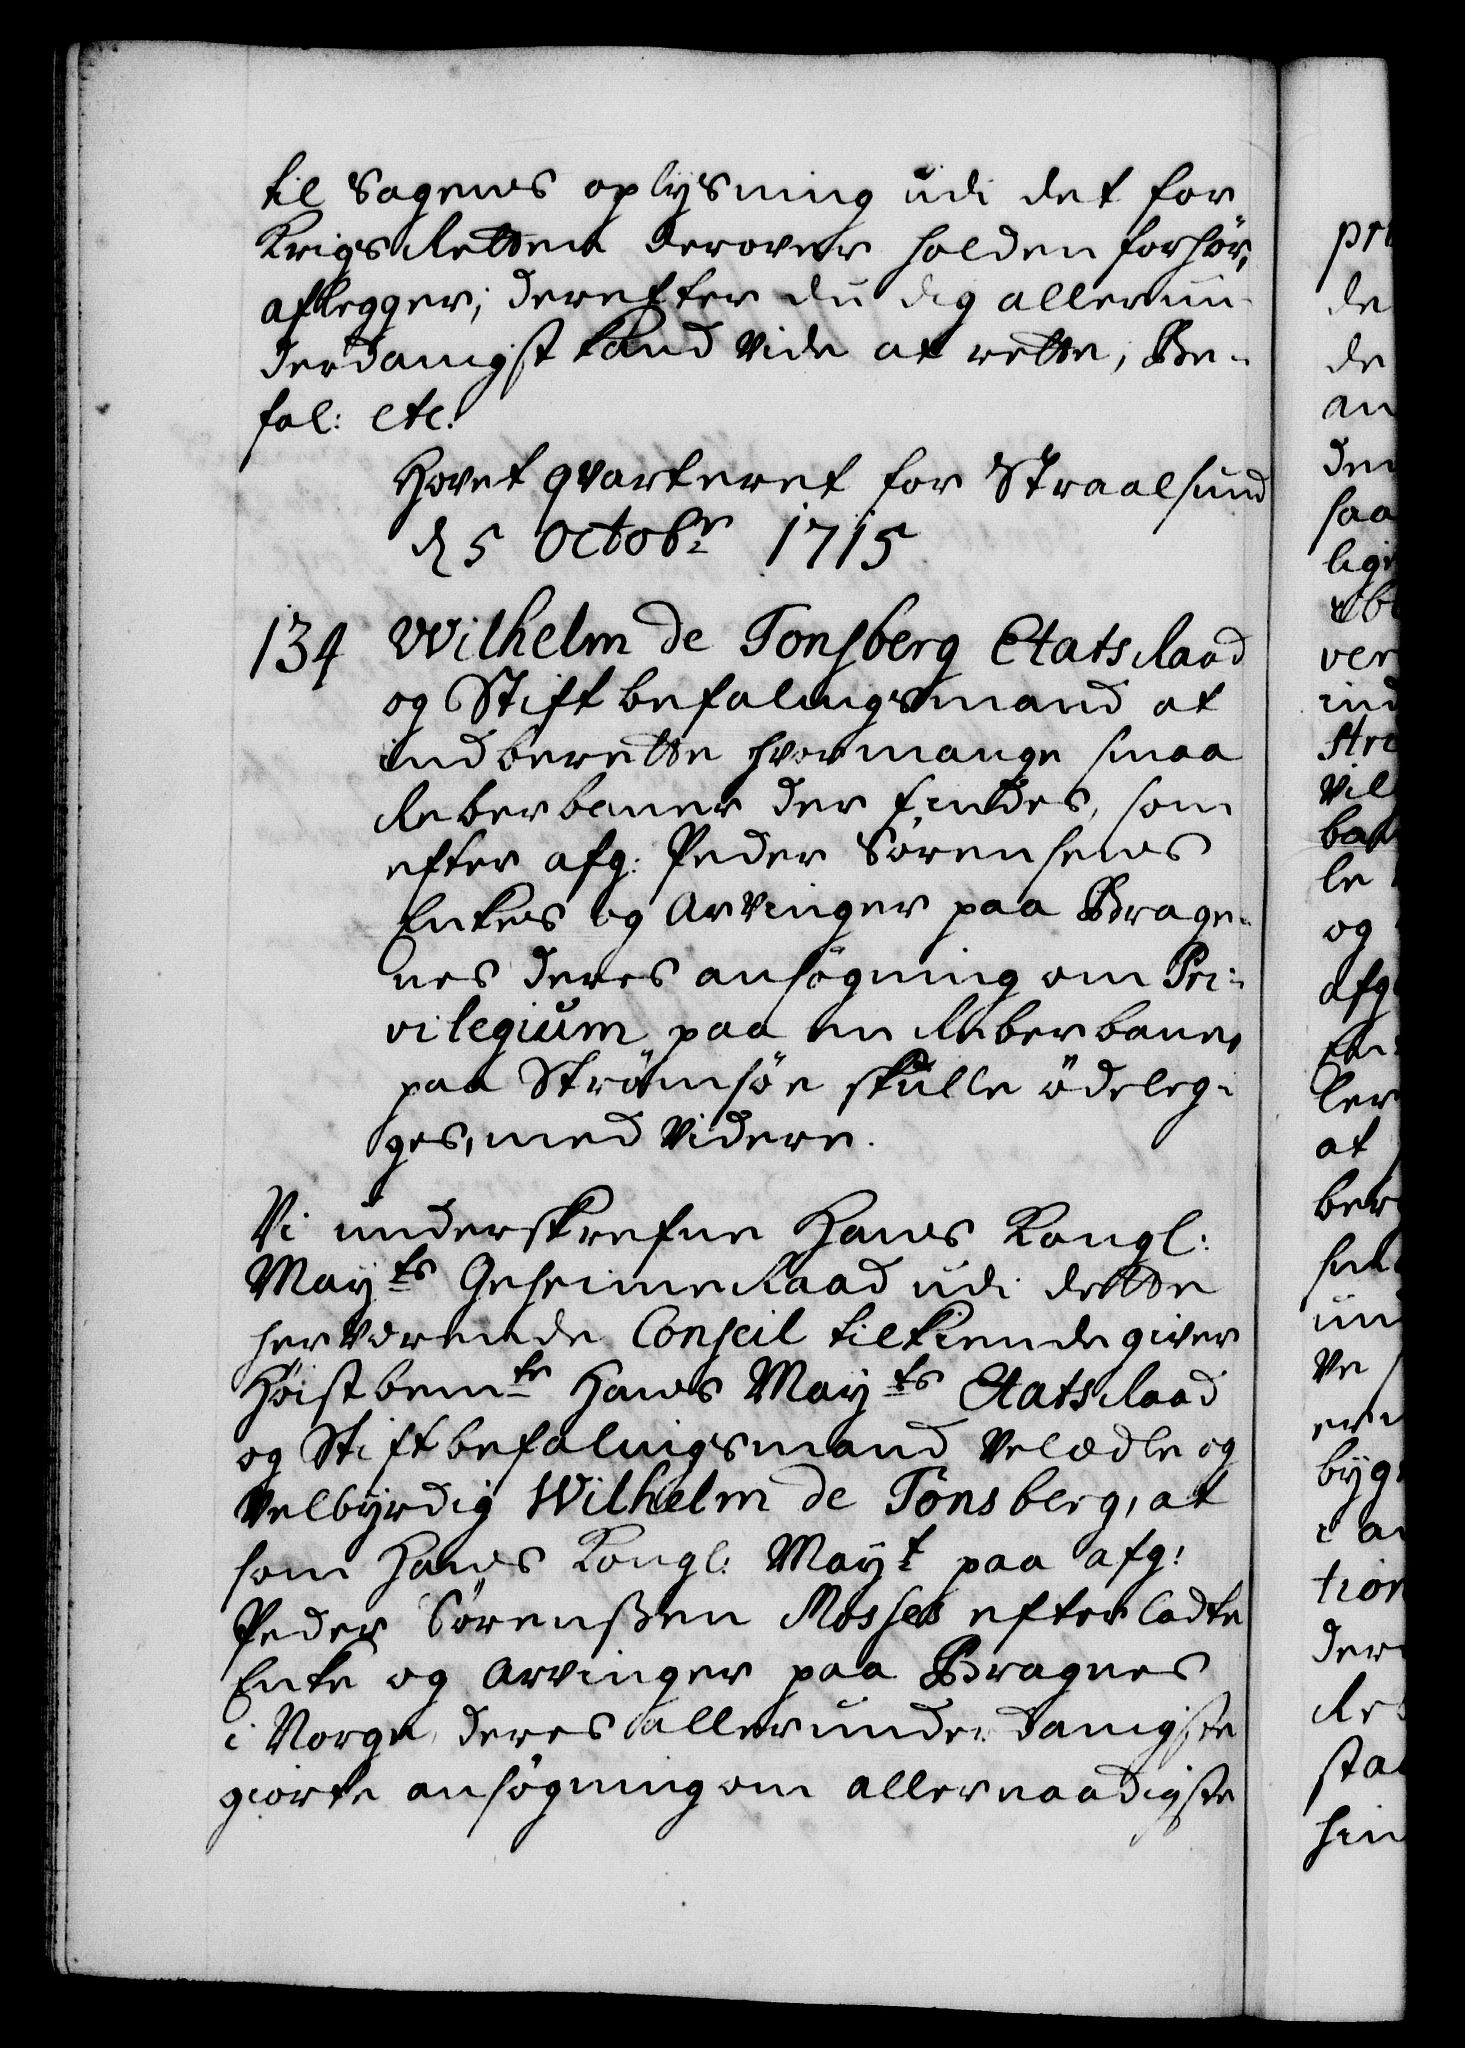 til Sagens oplysning udi det for
Krigs Retten derover holden forhör,
aflegger; derefter du dig allerun-
derdanigst kand vide at rette, Be-
fal: etc.
Hovet qvarteret for Straalsund
d 5 Octobr 1715
134 Wilhelm de Tonsberg Etats Raad
og Stiftbefalingsmand at
indberette hvormange smaa
Reberbaner der findes, som
efter afg: Peder Sörensens
Enkes og Arvinger paa Brage-
nes deres ansögning om Pri-
vilegium paa en Reberbane
paa Strömsöe skulle ödeleg-
ges, med videre.
Vi underskrefne Hans Kongl:
Mayts Geheime Raad udi dette
herværende Conseil tilkiende giver
Höistbemte Hans Mayts Etats Raad
og Stiftbefalingsmand Velædle og
Velbyrdig Wilhelm de Tönsberg, at
som Hans Kongl: Mayt paa afg:
Peder Sörenßen Mosses efterladte
Enke og Arvinger paa Bragnes
i Norge, deres allerunderdanigste
giorte ansögning om allernaadigste
de
de
an
den
saa
ver
ind
og
at